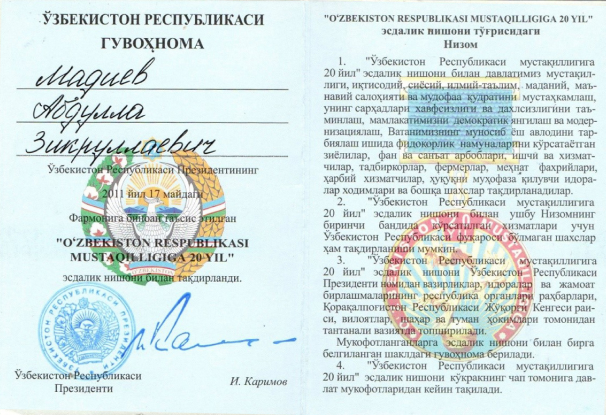 ЎЗБЕКИСТОН РЕСПУБЛИКАСИ
ГУВОҲНОМА
Мадиев
Абдулла
Зикруллаевич
Ўзбекистон Республикаси Президентининг
2011 йил 17 майдаги
Фармонига биноан таъсис этилган
"O'ZBEKISTON RESPUBLIKASI
MUSTAQILLIGIGA 20 YIL"
эсдалик нишони билан тақдирланди.
Ўзбекистон Республикаси
Президенти
И. Каримов
"O'ZBEKISTON RESPUBLIKASI MUSTAQILLIGIGA 20 YIL"
эсдалик нишони тўғрисидаги
Низом
1. "Ўзбекистон Республикаси мустақиллигига
20 йил" эсдалик нишони билан давлатимиз мустақил-
лиги, иқтисодий, сиёсий, илмий-таълим, маданий, маъ-
навий салоҳияти ва мудофаа қудратини мустаҳкамлаш,
унинг сарҳадлари хавфсизлиги ва дахлсизлигини таъ-
минлаш, мамлакатимизни демократик янгилаш ва модер-
низациялаш, Ватанимизнинг муносиб ёш авлодини тар-
биялаш ишида фидокорлик намуналарини кўрсатётган
зиёлилар, фан ва санъат арбоблари, ишчи ва хизмат-
чилар, тадбиркорлар, фермерлар, меҳнат фахрийлари,
ҳарбий хизматчилар, ҳуқуқни муҳофаза қилувчи идора-
лар ходимлари ва бошқа шахслар тақдирландилар.
2. "Ўзбекистон Республикаси мустақиллигига
20 йил" эсдалик нишони билан ушбу Низомнинг
биринчи бандида кўрсатилган хизматлари учун
Ўзбекистон Республикаси фуқароси бўлмаган шахслар
ҳам тақдирланиши мумкин.
3. "Ўзбекистон Республикаси мустақиллигига
20 йил" эсдалик нишони Ўзбекистон Республикаси
Президенти номидан вазирликлар, идоралар ва жамоат
бирлашмаларининг республика органлари раҳбарлари,
Қорақалпоғистон Республикаси Жўқорғи Кенгеси раи-
си, вилоятлар, шаҳар ва туман ҳокимлари томонидан
тантанали вазиятда топширилади.
Мукофотланганларга эсдалик нишони билан бирга
белгиланган шаклдаги гувоҳнома берилади.
4. "Ўзбекистон Республикаси мустақиллигига
20 йил" эсдалик нишони кўкракнинг чап томонига дав-
лат мукофотларидан кейин тақилади.